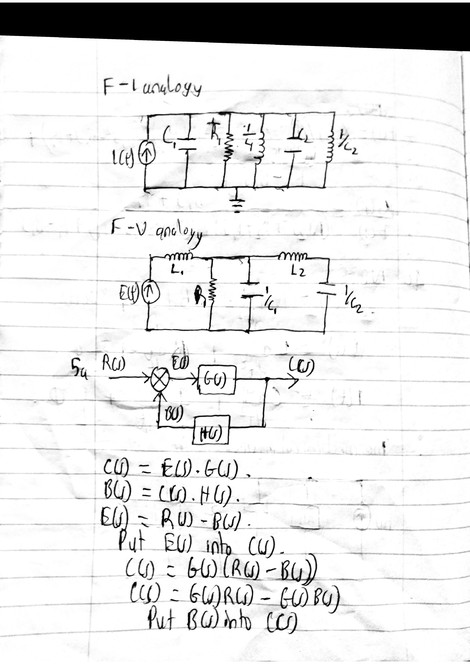 F-I analogy
I(t) C₁ R₁ 1/4 C₂ 1/C₂
F-V analogy
L₁ L₂
E(t) R₁ 1/C₁ 1/C₂
5a R(s) E(s) G(s) C(s)
B(s)
H(s)
C(s) = E(s).G(s).
B(s) = C(s).H(s).
E(s) = R(s) - B(s).
Put E(s) into C(s).
C(s) = G(s)(R(s) - B(s))
C(s) = G(s)R(s) - G(s)B(s)
Put B(s) into C(s)